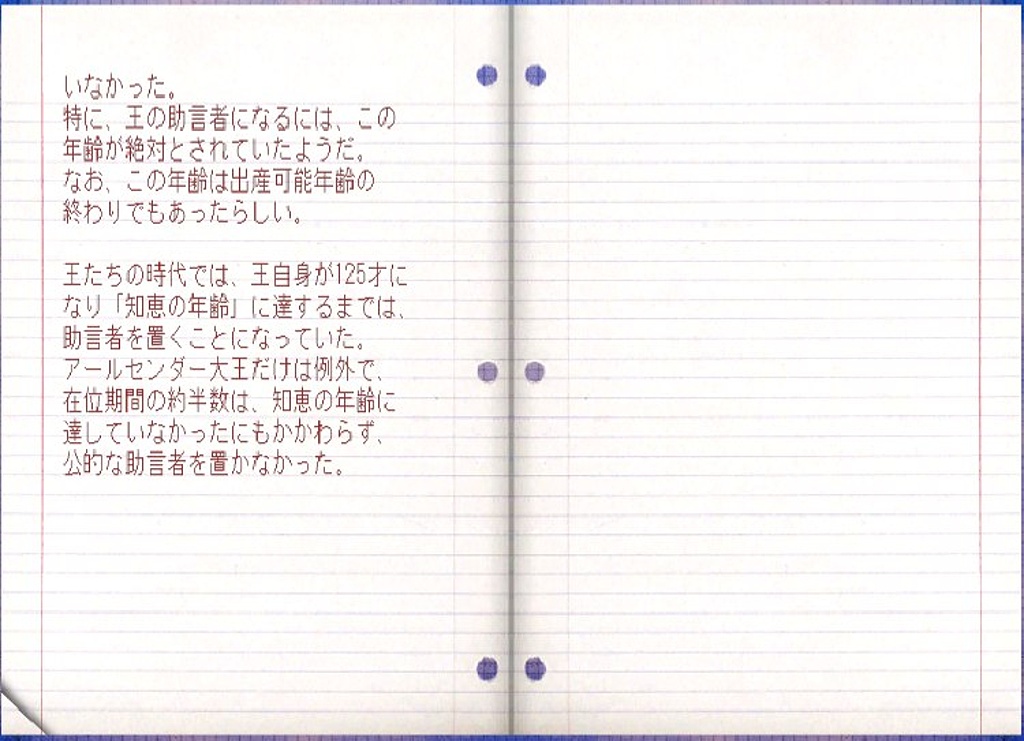 いなかった。
特に、王の助言者になるには、この
年齢が絶対とされていたようだ。
なお、この年齢は出産可能年齢の
終わりでもあったらしい。
王たちの時代では、王自身が125才に
なり「知恵の年齢」に達するまでは、
助言者を置くことになっていた。
アールセンダー大王だけは例外で、
在位期間の約半数は、知恵の年齢に
達していなかったにもかかわらず、
公的な助言者を置かなかった。